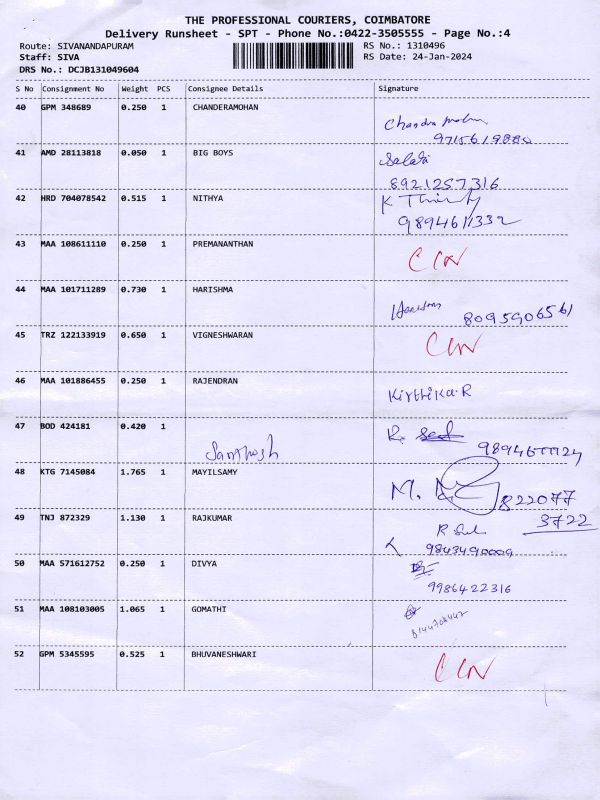 THE PROFESSIONAL COURIERS, COIMBATORE
Delivery Runsheet - SPT - Phone No.:0422-3505555 - Page No.:4
Route: SIVANANDAPURAM
RS No.: 1310496
Staff: SIVA
RS Date: 24-Jan-2024
DRS No.: DCJB131049604
S No Consignment No Weight PCS Consignee Details Signature
40 GPM 348689 0.250 1 CHANDERAMOHAN
Chandra
9715619880
41 AMD 28113818 0.050 1 BIG BOYS
8921257316
42 HRD 704078542 0.515 1 NITHYA
K
9894611332
43 MAA 108611110 0.250 1 PREMANANTHAN
44 MAA 101711289 0.730 1 HARISHMA
8095906561
45 TRZ 122133919 0.650 1 VIGNESHWARAN
46 MAA 101886455 0.250 1 RAJENDRAN
Kirthika.R
47 BOD 424181 0.420 1
Santhosh
R.
48 KTG 7145084 1.765 1 MAYILSAMY
M.
822077
3722
49 TNJ 872329 1.130 1 RAJKUMAR
R
9843490009
50 MAA 571612752 0.250 1 DIVYA
9986422316
51 MAA 108103005 1.065 1 GOMATHI
52 GPM 5345595 0.525 1 BHUVANESHWARI